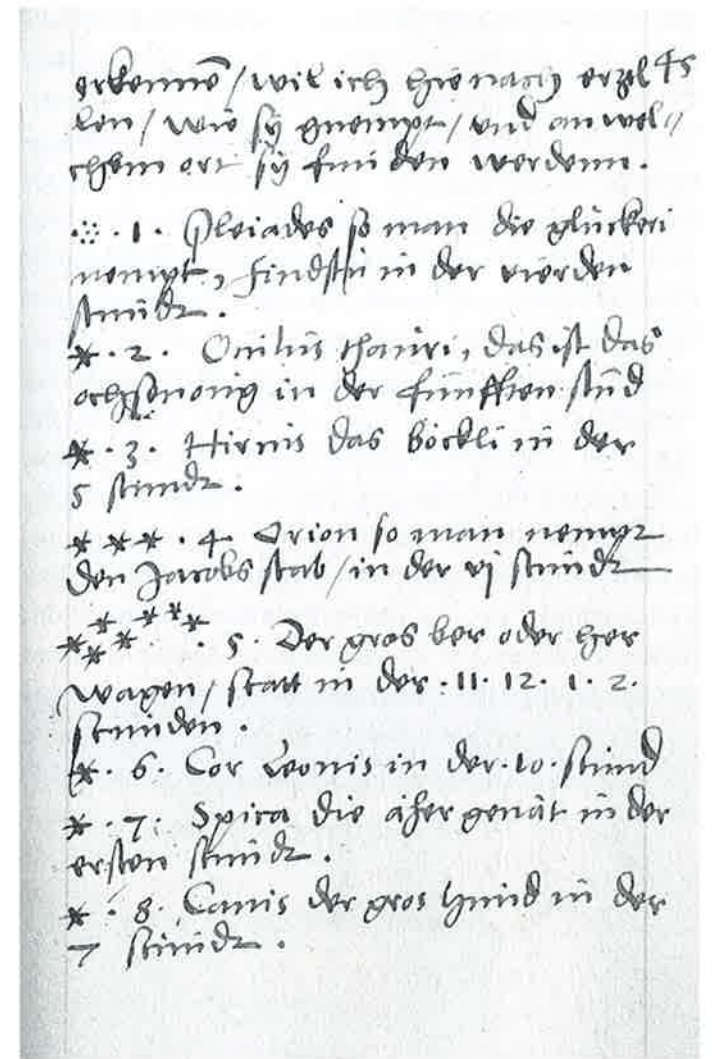 erkennē / wil ich hie nach erzel 45
len / wie sy gnempt / und an wel//
chem ort sy funden werdenn.
.1. Pleiades so man die glückeri
nempt, findstu in der vierden
stundt.
* .2. Oculus thauri, das ist das
ochssnoug in der fünfften stūd
* .3. Hircus das böckli in der
5 stundt.
* * * .4. Orion so man nempt
den Jacobs stab / in der vj stundt
* * * * * * * . 5. Der gros ber oder her
wagen / statt in der .11. 12. 1. 2.
stunden.
* .6. Cor Leonis in der .10. stund
* .7. Spica die äher genāt in der
ersten stundt.
* .8. Canis der gros hund in der
7 stundt.